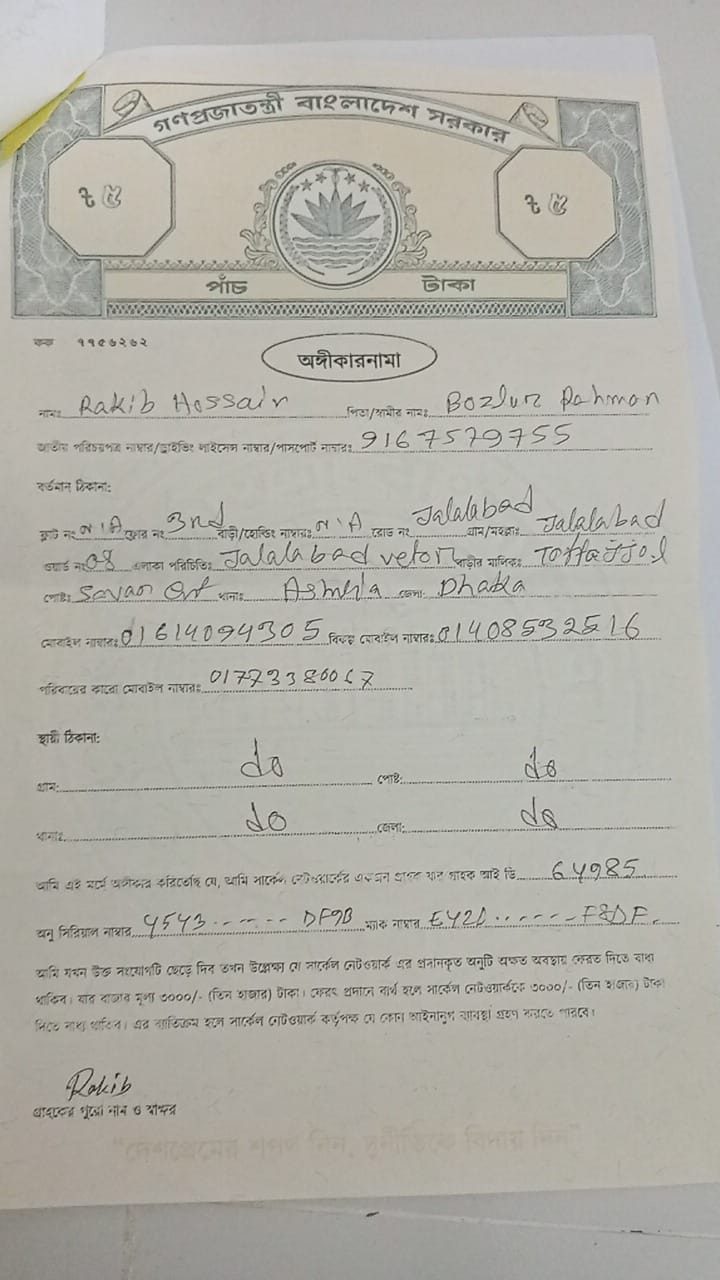 গণপ্রজাতন্ত্রী বাংলাদেশ সরকার
৳ ৫ ৳ ৫
পাঁচ টাকা
কক ৭৭৫৬২৬২
অঙ্গীকারনামা
নামঃ Rakib Hossain পিতা/স্বামীর নামঃ Bozlur Rahman
জাতীয় পরিচয়পত্র নাম্বার/ড্রাইভিং লাইসেন্স নাম্বার/পাসপোর্ট নাম্বারঃ 9167579755
বর্তমান ঠিকানা:
ফ্লাট নং N/A ফ্লোর নং 3rd বাড়ী/হোল্ডিং নাম্বারঃ N/A রোড নং Jalalabad গ্রাম/মহল্লাঃ Jalalabad
ওয়ার্ড নং 08 এলাকা পরিচিতিঃ Jalalabad vetor বাড়ীর মালিকঃ Toffajjol
পোষ্টঃ Savar থানাঃ জেলা Dhaka
মোবাইল নাম্বারঃ 01614094305 বিকল্প মোবাইল নাম্বারঃ 01408532516
পরিবারের কারো মোবাইল নাম্বারঃ
স্থায়ী ঠিকানা:
গ্রাম: do পোষ্ট: do
থানাঃ do জেলা: do
আমি এই মর্মে অঙ্গীকার করিতেছি যে, আমি সার্কেল নেটওয়ার্কের একজন গ্রাহক যার গ্রাহক আই ডি 64985
অনু সিরিয়াল নাম্বার 4543------ DF9B ম্যাক নাম্বার E42D------F8DF.
আমি যখন উক্ত সংযোগটি ছেড়ে দিব তখন উল্লেক্ষ্য যে সার্কেল নেটওয়ার্ক এর প্রদানকৃত অনুটি অক্ষত অবস্থায় ফেরত দিতে বাধ্য
থাকিব। যার বাজার মূল্য ৩০০০/- (তিন হাজার) টাকা। ফেরৎ প্রদানে ব্যর্থ হলে সার্কেল নেটওয়ার্ককে ৩০০০/- (তিন হাজার) টাকা
দিতে বাধ্য থাকিব। এর ব্যতিক্রম হলে সার্কেল নেটওয়ার্ক কর্তৃপক্ষ যে কোন আইনানুগ ব্যবস্থা গ্রহণ করতে পারবে।
Rakib
গ্রাহকের পুরো নাম ও স্বাক্ষর
"দেশপ্রেমের শপথ নিন, দুর্নীতিকে বিদায় দিন"